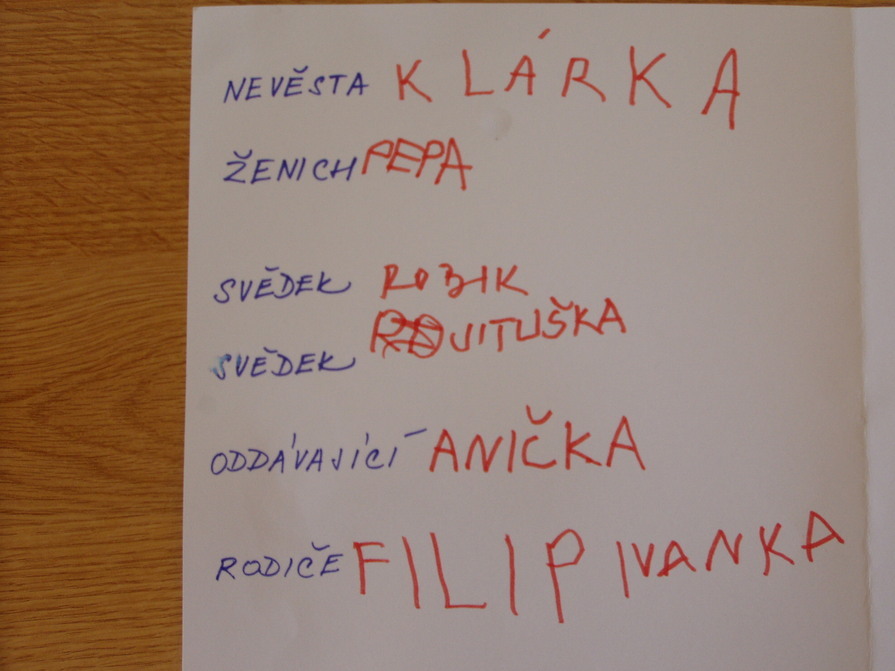 NEVĚSTA KLÁRKA
ŽENICH PEPA
SVĚDEK ROBIK
SVĚDEK JITUŠKA
ODDÁVAJÍCÍ ANIČKA
RODIČE FILIP IVANKA